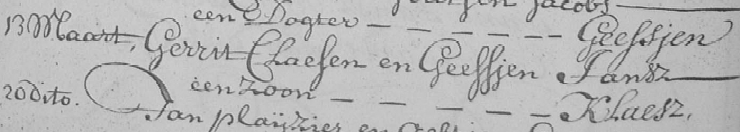 een Dogter — — — — — — Geessjen
13 Maart. Gerrit Claesen en Geessjen Jansz
een zoon — — — — — Klaesz.
20 dito. Jan plaijzier en